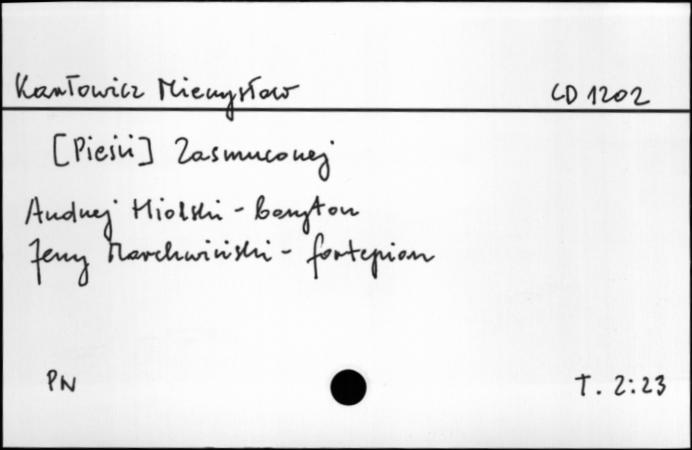 Karłowicz Mieczysław CD 1202
[Pieśń] Zasmuconej
Andrzej Hiolski - baryton
Jerzy Marchwiński - fortepian
PN T. 2:23